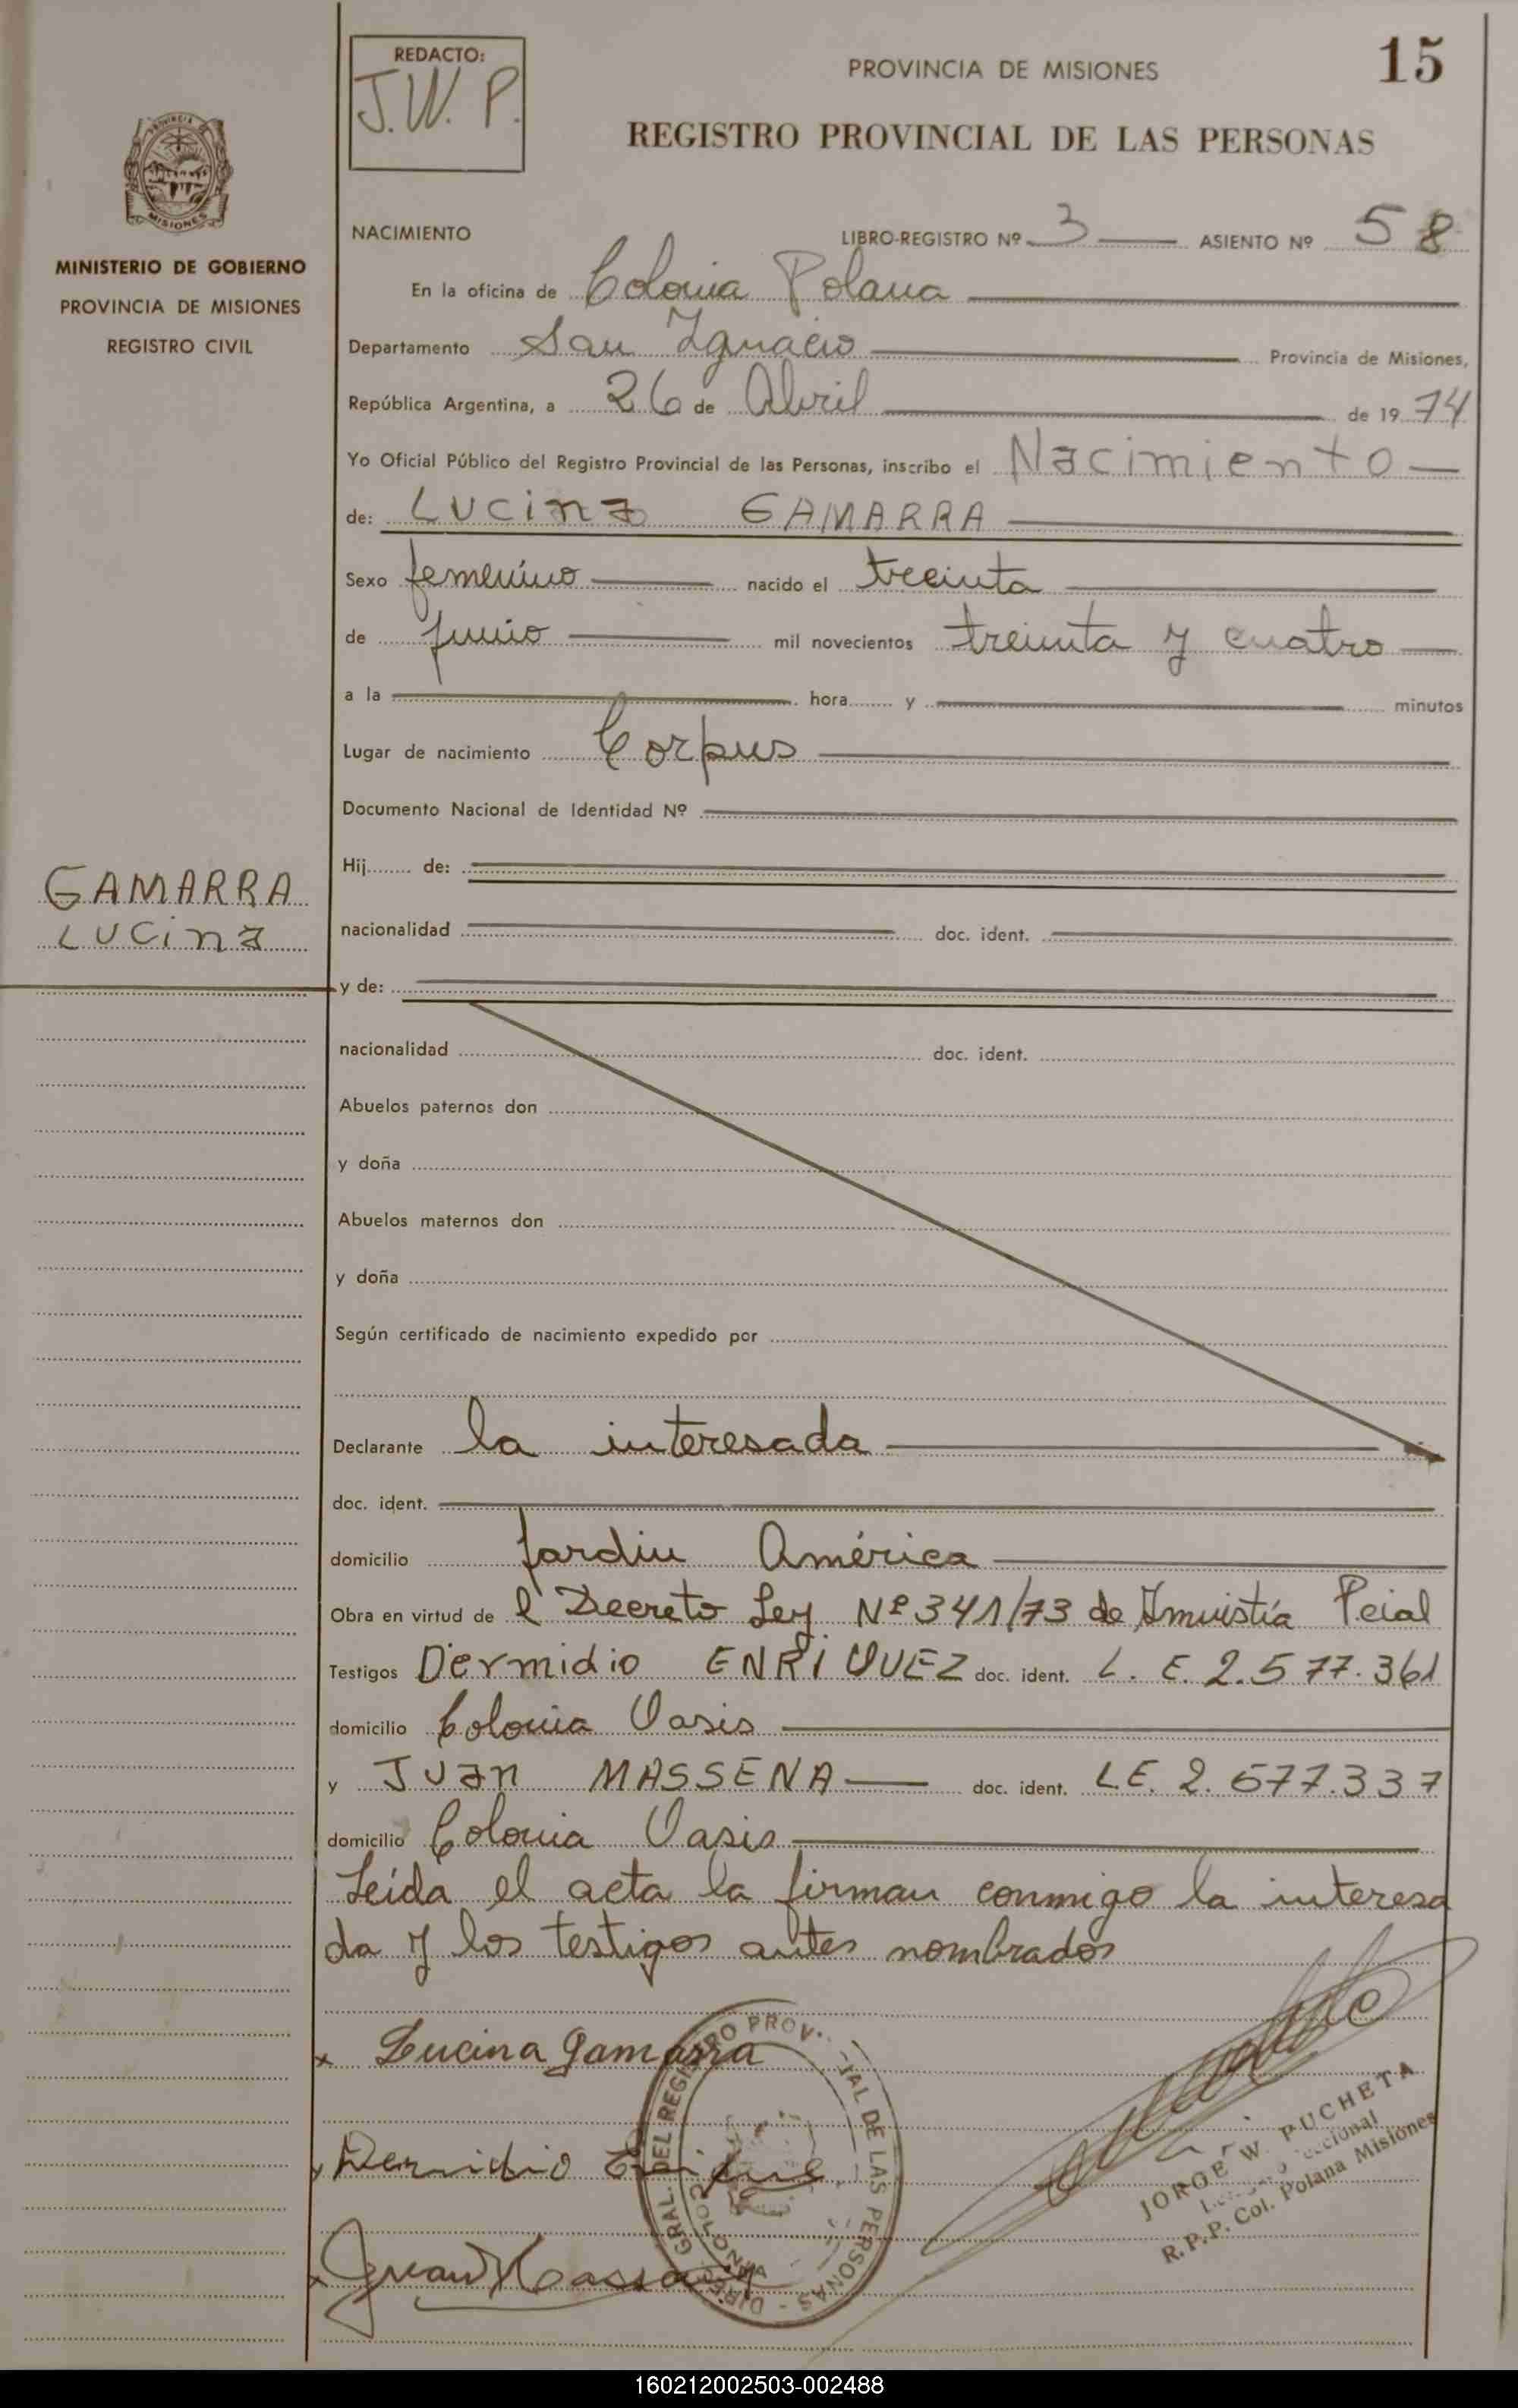 REDACTO:
J.W.P.
PROVINCIA DE MISIONES
15
REGISTRO PROVINCIAL DE LAS PERSONAS
PROVINCIA DE
MISIONES
MINISTERIO DE GOBIERNO
PROVINCIA DE MISIONES
REGISTRO CIVIL
NACIMIENTO LIBRO-REGISTRO Nº 3 ASIENTO Nº 58
En la oficina de Colonia Polana
Departamento San Ignacio Provincia de Misiones,
República Argentina, a 26 de Abril de 1974
Yo Oficial Público del Registro Provincial de las Personas, inscribo el Nacimiento
de: Lucina GAMARRA
Sexo femenino nacido el treinta
de junio mil novecientos treinta y cuatro
a la hora y minutos
Lugar de nacimiento Corpus
Documento Nacional de Identidad Nº
Hij de:
GAMARRA
Lucina
nacionalidad doc. ident.
y de:
nacionalidad doc. ident.
Abuelos paternos don
y doña
Abuelos maternos don
y doña
Según certificado de nacimiento expedido por
Declarante la interesada
doc. ident.
domicilio Jardin América
Obra en virtud de l Decreto Ley Nº 341/73 de Amnistía Pcial
Testigos Dermidio ENRIQUEZ doc. ident. L. E. 2.577.361
domicilio Colonia Oasis
y Juan MASSENA doc. ident. L.E. 2.677.337
domicilio Colonia Oasis
Leída el acta la firman conmigo la interesa
da y los testigos antes nombrados
x Lucina Gamarra
DIREC. GRAL. DEL REGISTRO PROV. DE LAS PERSONAS
JORGE W. PUCHETA
R.P.P. Col. Polana Misiones
x Dermidio
x Juan Massena
160212002503-002488